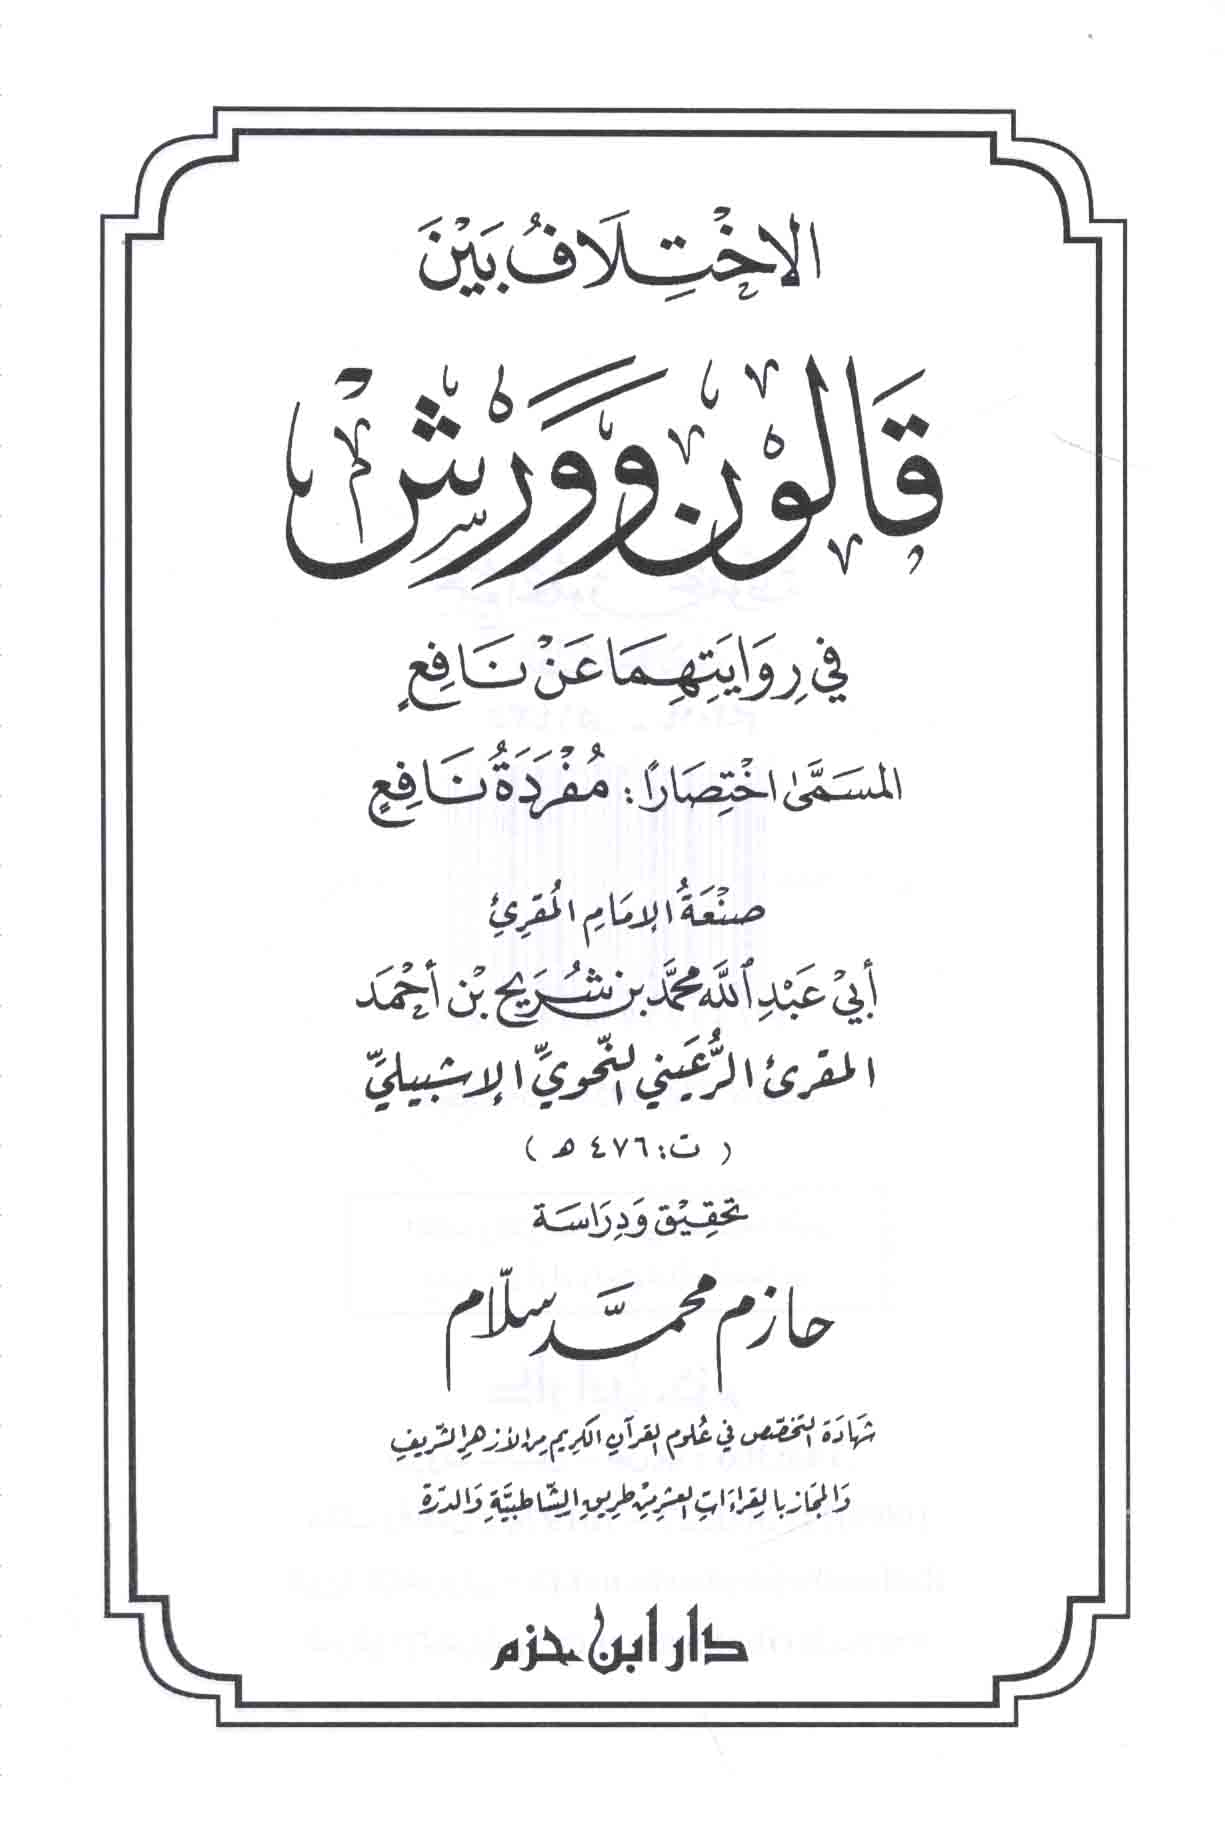 الاخْتِلَافُ بَيْنَ
قَالُوْن وَوَرْش
فِي رِوَايَتِهِمَا عَنْ نَافِعٍ
المسَمَّى اخْتِصَارًا: مُفْرَدَةُ نَافِعٍ
صنْعَةُ الإمَامِ المُقرِئِ
أَبِيْ عَبْدِ اللَّه محمَّد بن شُرَيح بْن أحْمَد
المقرئ الرُّعَيني النّحويِّ الإشبيليِّ
( ت: ٤٧٦ هـ )
تحقِيْق وَدِرَاسَة
حازم محمَّد سلّام
شَهَادَة التخصّص في عُلوم القرآنِ الكَرِيم مِن الأزهر الشّريفِ
وَالمجَاز بالقِراءَاتِ العشر مِن طريقِ الشّاطبيَّةِ وَالدرّة
دار ابن حزم